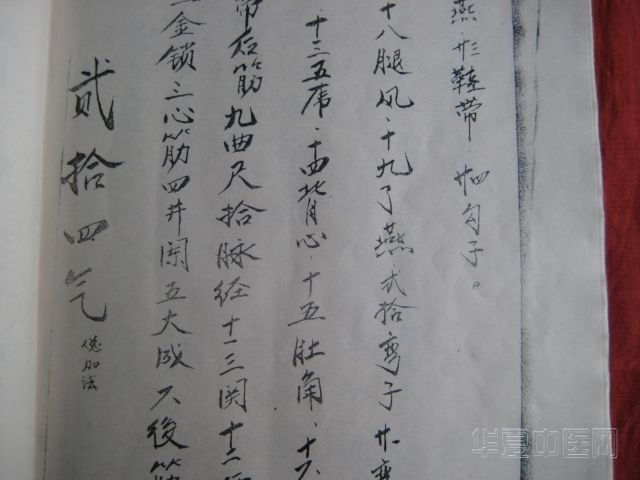 燕形鞋带·廿四勾子。
十八腿风·十九了燕弍拾弯子廿弯
十三五库·十四背心·十五肚角·十六
带后筋九曲尺拾脉经十一三关十二
金锁三心筋四井关五大成六後筋
贰拾四气
加法
华夏中医网